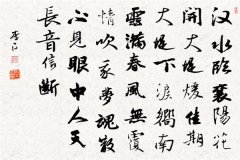 汉水臨襄陽花
開大堤煖佳期
大堤下淚嚮南
雲滿春風無復
情吹我夢魂散
不見眼中人天
長音信斷
李白